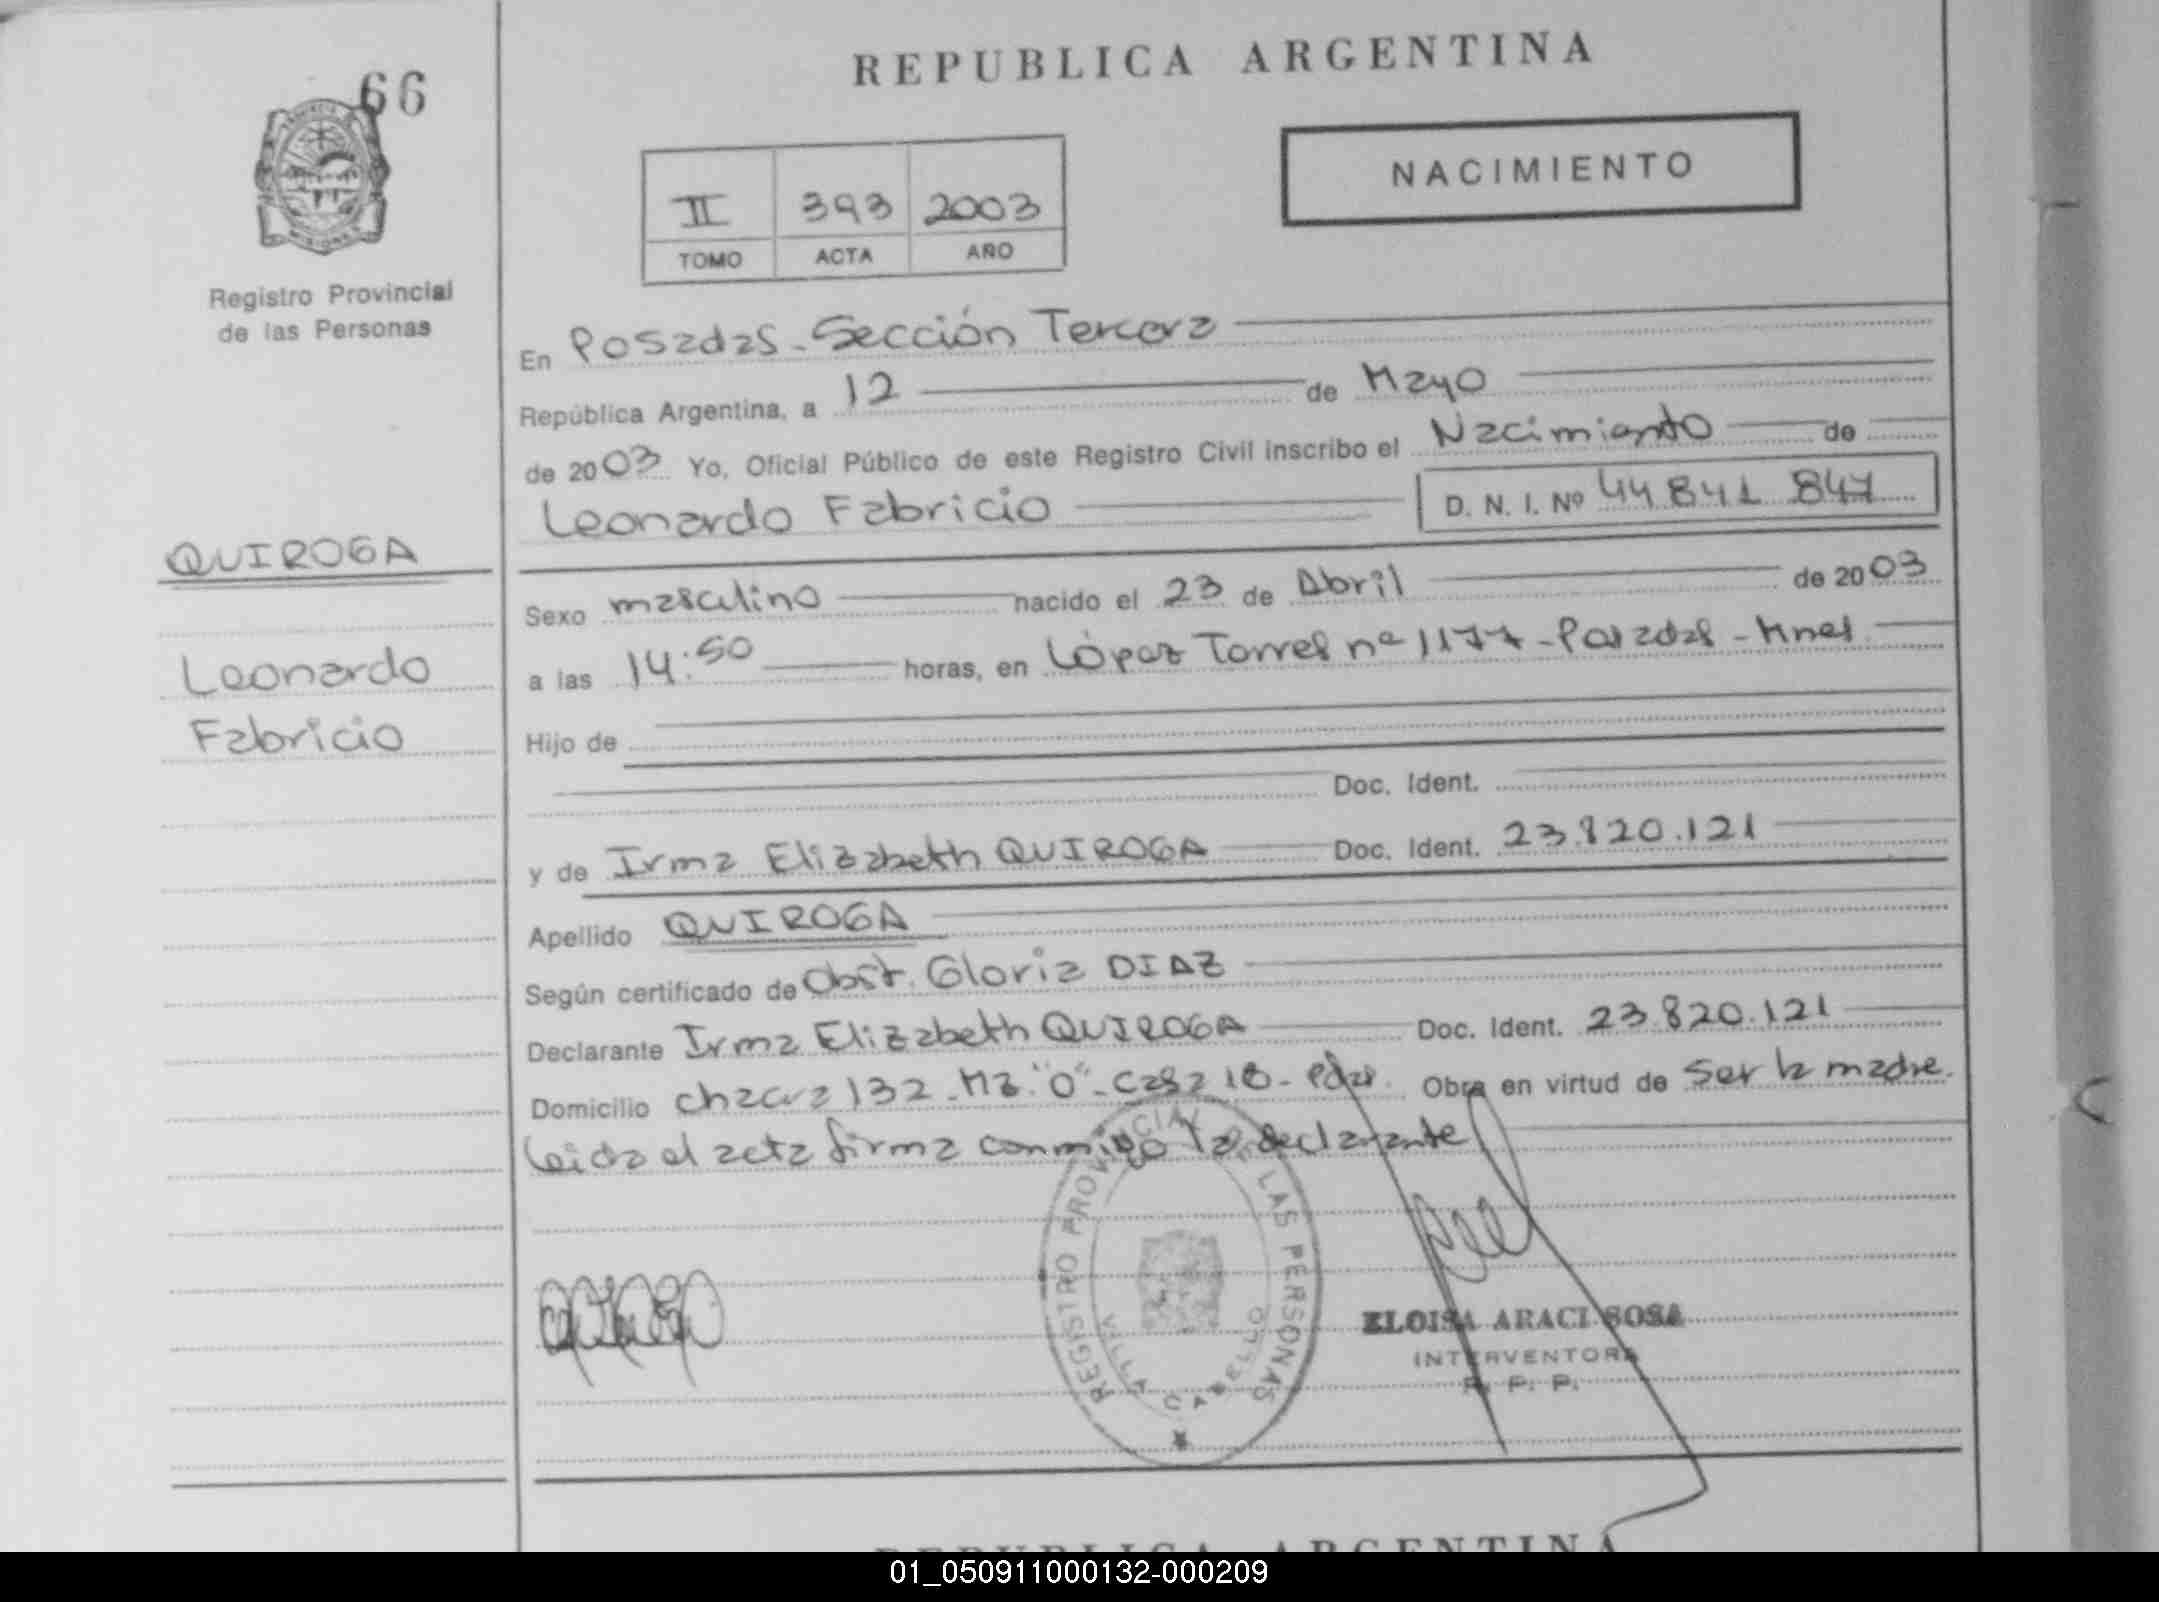 66
REPUBLICA ARGENTINA
NACIMIENTO
II 393 2003
TOMO ACTA AÑO
PROVINCIA
MISIONES
Registro Provincial
de las Personas
En Posadas - Sección Tercera
República Argentina, a 12 de Mayo
de 2003 Yo, Oficial Público de este Registro Civil inscribo el Nacimiento de
Leonardo Fabricio D. N. I. Nº 44 841 847
QUIROGA
Leonardo
Fabricio
Sexo masculino nacido el 23 de Abril de 2003
a las 14:50 horas, en López Torres nº 1177 - Posadas - Mnes.
Hijo de
Doc. Ident.
y de Irma Elizabeth QUIROGA Doc. Ident. 23.820.121
Apellido QUIROGA
Según certificado de Obst. Gloria DIAZ
Declarante Irma Elizabeth QUIROGA Doc. Ident. 23.820.121
Domicilio chacra 132 - Mz. "O" - Casa 18 - Pdas. Obra en virtud de Ser la madre.
Leida el acta firma conmigo la declarante
REGISTRO PROVINCIAL DE LAS PERSONAS
VILLA CABELLO
ELOISA ARACI SOSA
INTERVENTORA
R. P. P.
REPUBLICA ARGENTINA
01_050911000132-000209